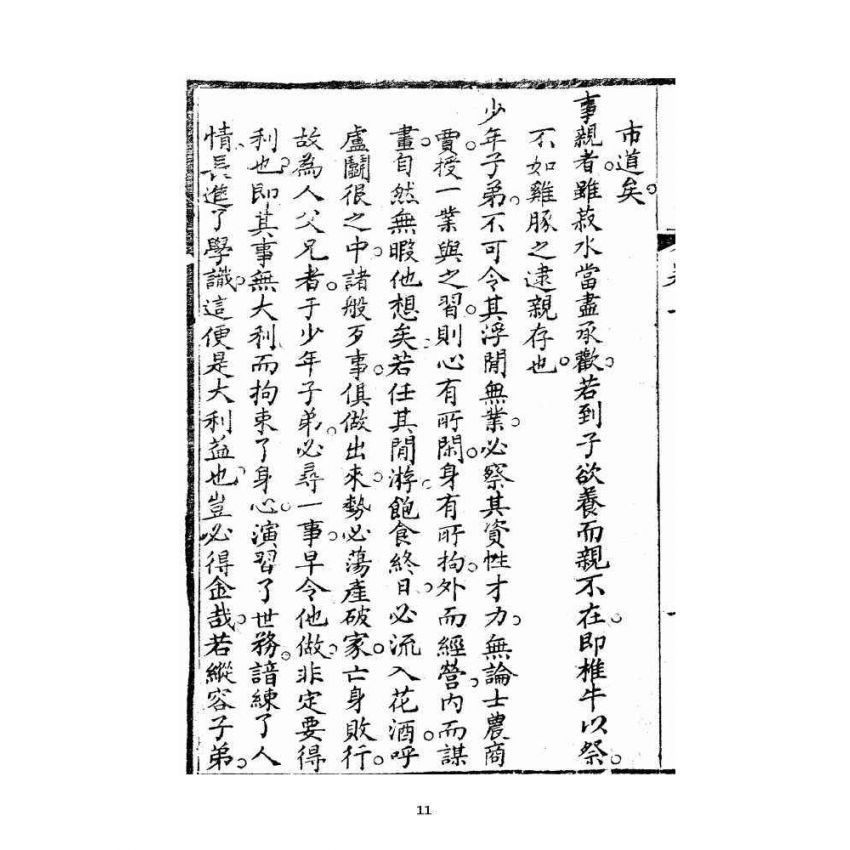 市道矣。
事親者。雖菽水當盡承歡。若到子欲養而親不在。即椎牛以祭。
不如雞豚之逮親存也。
少年子弟。不可令其浮閒無業。必察其資性才力。無論士農商
賈。授一業與之習。則心有所閑。身有所拘。外而經營。內而謀
畫。自然無暇他想矣。若任其閒游。飽食終日。必流入花酒。呼
盧鬭很之中。諸般歹事。俱做出來。勢必蕩產破家。亡身敗行。
故為人父兄者。于少年子弟。必尋一事。早令他做。非定要得
利也。即其事無大利。而拘束了身心。演習了世務。諳練了人
情。長進了學識。這便是大利益也。豈必得金哉。若縱容子弟。
11